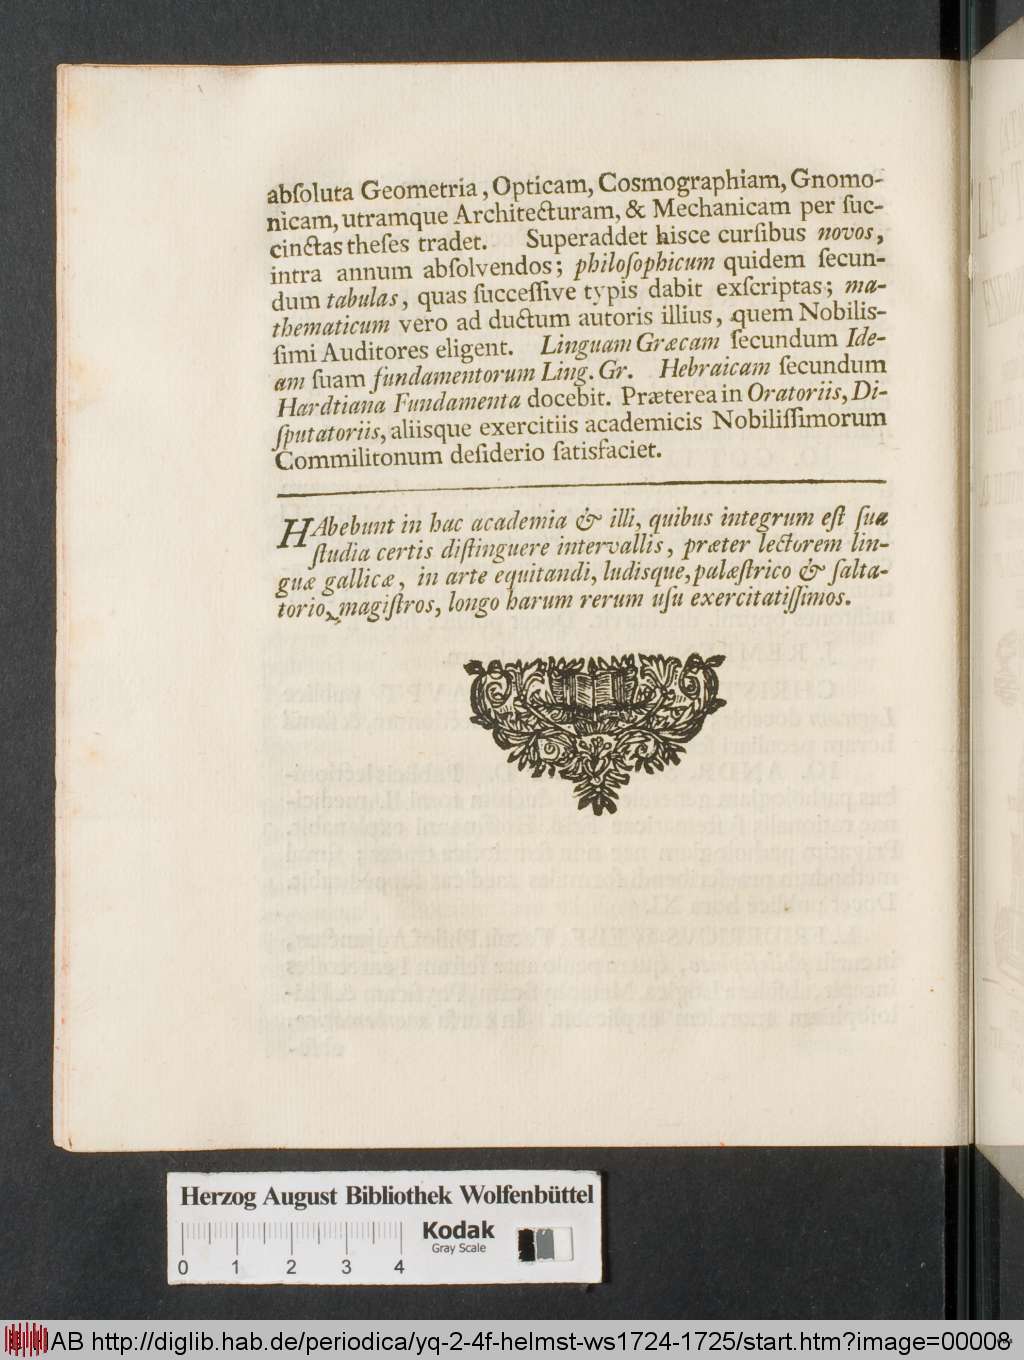 abſoluta Geometria, Opticam, Cosmographiam, Gnomo-
nicam, utramque Architecturam, & Mechanicam per ſuc-
cinctas theſes tradet. Superaddet hisce curſibus novos,
intra annum abſolvendos; philoſophicum quidem ſecun-
dum tabulas, quas ſucceſſive typis dabit exſcriptas; ma-
thematicum vero ad ductum autoris illius, quem Nobilis-
ſimi Auditores eligent. Linguam Græcam ſecundum Ide-
am ſuam fundamentorum Ling. Gr. Hebraicam ſecundum
Hardtiana Fundamenta docebit. Præterea in Oratoriis, Di-
ſputatoriis, aliisque exercitiis academicis Nobiliſſimorum
Commilitonum deſiderio ſatisfaciet.
HAbebunt in hac academia & illi, quibus integrum eſt ſua
ſtudia certis diſtinguere intervallis, præter lectorem lin-
guæ gallicæ, in arte equitandi, ludisque, palæſtrico & ſalta-
torio, magiſtros, longo harum rerum uſu exercitatiſſimos.
Herzog August Bibliothek Wolfenbüttel
Kodak
Gray Scale
0 1 2 3 4
HAB http://diglib.hab.de/periodica/yq-2-4f-helmst-ws1724-1725/start.htm?image=00008